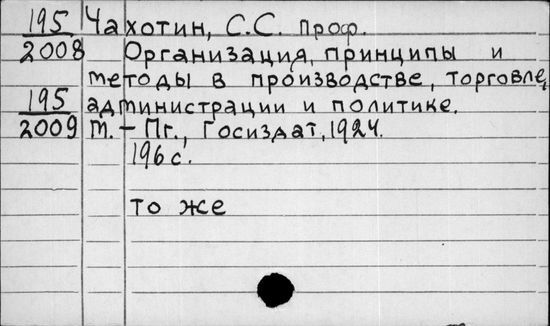 195 Чахотин, С.С. Проф.
2008 Организация, принципы и
методы в производстве, торговле,
195 администрации и политике.
2009 М. – Пг., Госиздат, 1924.
196 с.
то же